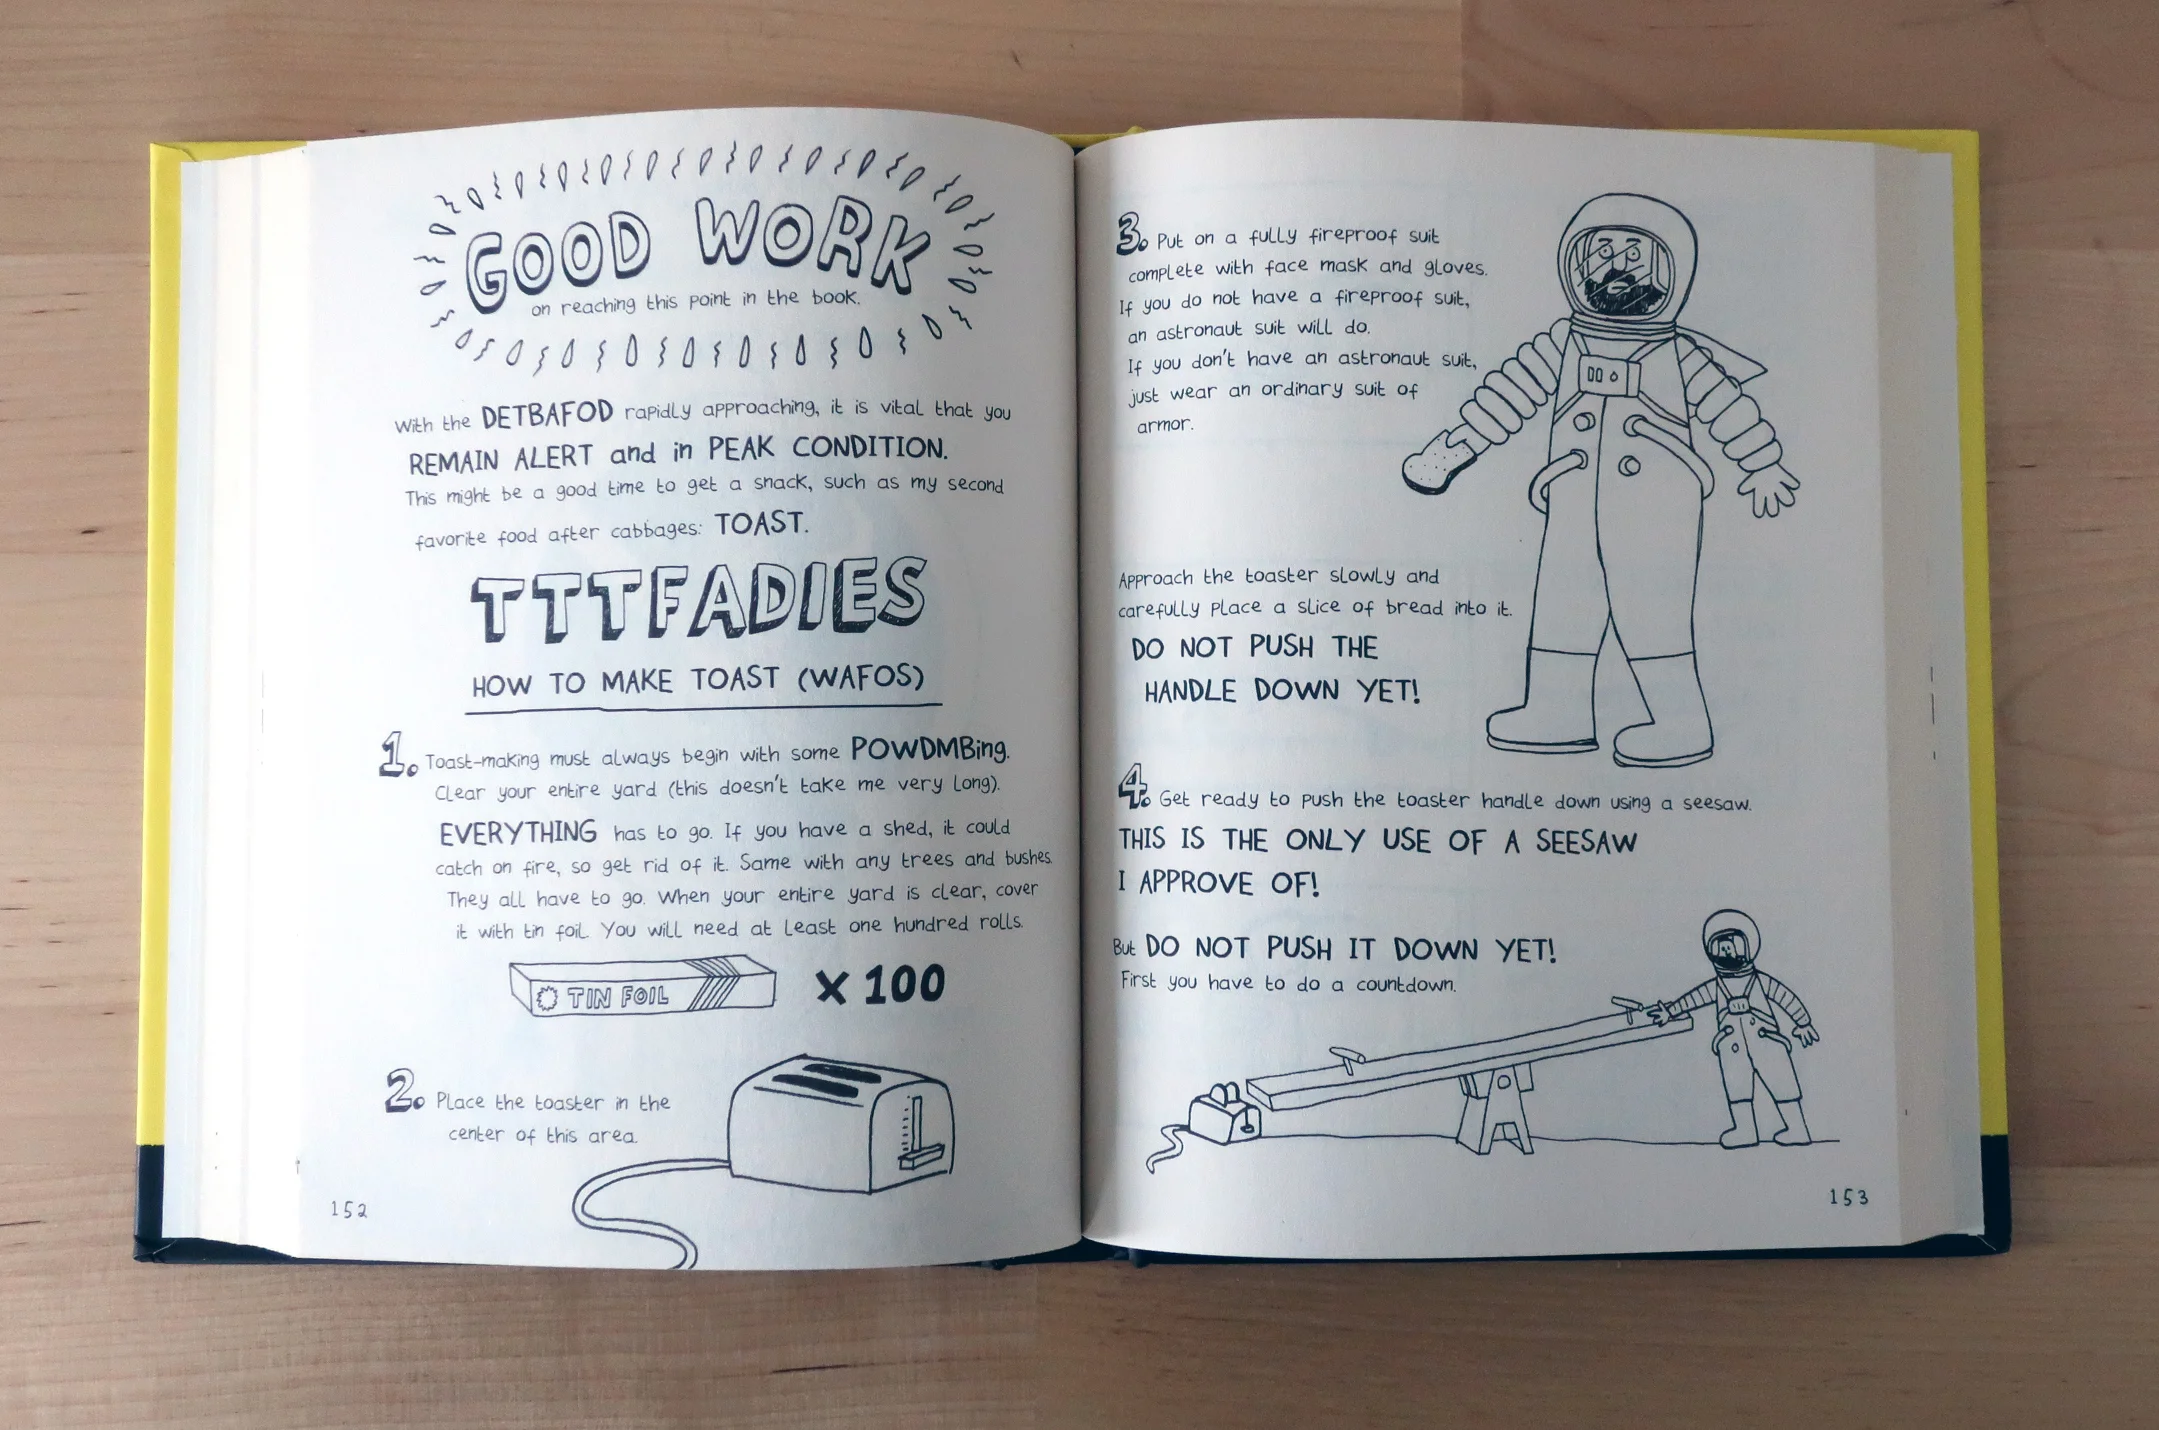 GOOD WORK
on reaching this point in the book.
With the DETBAFOD rapidly approaching, it is vital that you
REMAIN ALERT and in PEAK CONDITION.
This might be a good time to get a snack, such as my second
favorite food after cabbages: TOAST.
TTTFADIES
HOW TO MAKE TOAST (WAFOS)
1. Toast-making must always begin with some POWDMBing.
Clear your entire yard (this doesn't take me very long).
EVERYTHING has to go. If you have a shed, it could
catch on fire, so get rid of it. Same with any trees and bushes.
They all have to go. When your entire yard is clear, cover
it with tin foil. You will need at least one hundred rolls.
TIN FOIL x 100
2. Place the toaster in the
center of this area.
152
3. Put on a fully fireproof suit
complete with face mask and gloves.
If you do not have a fireproof suit,
an astronaut suit will do.
If you don't have an astronaut suit,
just wear an ordinary suit of
armor.
Approach the toaster slowly and
carefully place a slice of bread into it.
DO NOT PUSH THE
HANDLE DOWN YET!
4. Get ready to push the toaster handle down using a seesaw.
THIS IS THE ONLY USE OF A SEESAW
I APPROVE OF!
But DO NOT PUSH IT DOWN YET!
First you have to do a countdown.
153